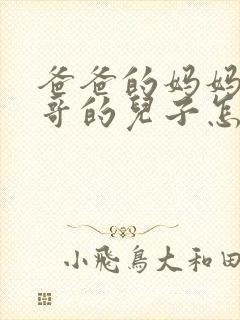 爸爸的妈妈
哥的兒子怎
小飛鳥大和田